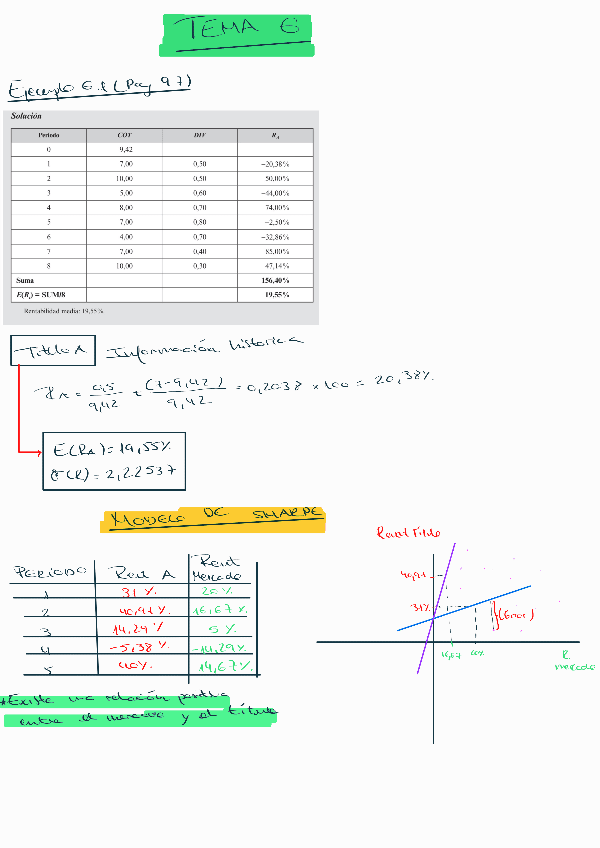 TEMA 6
Ejemplo 6.1 (Pag 97)
Solución
Periodo COT DIV R_A
0 9,42
1 7,00 0,50 −20,38%
2 10,00 0,50 50,00%
3 5,00 0,60 −44,00%
4 8,00 0,70 74,00%
5 7,00 0,80 −2,50%
6 4,00 0,70 −32,86%
7 7,00 0,40 85,00%
8 10,00 0,30 47,14%
Suma 156,40%
E(R_i) = SUM/8 19,55%
Rentabilidad media: 19,55%
Titulo A Información histórica
R_A = 0,5/9,42 + (7-9,42)/9,42 = 0,2038 x 100 = 20,38%
E(R_A) = 19,55%
σ(R) = 2,22537
MODELO DE SHARPE
PERIODO Rent A Rent Mercado
1 31% 20%
2 40,91% 16,67%
3 14,29% 5%
4 -5,38% -14,29%
5 40% 14,67%
*Existe una relación positiva
entre el mercado y el título
Rent Título
40,91
31%
(Error)
16,67 20%
R. mercado